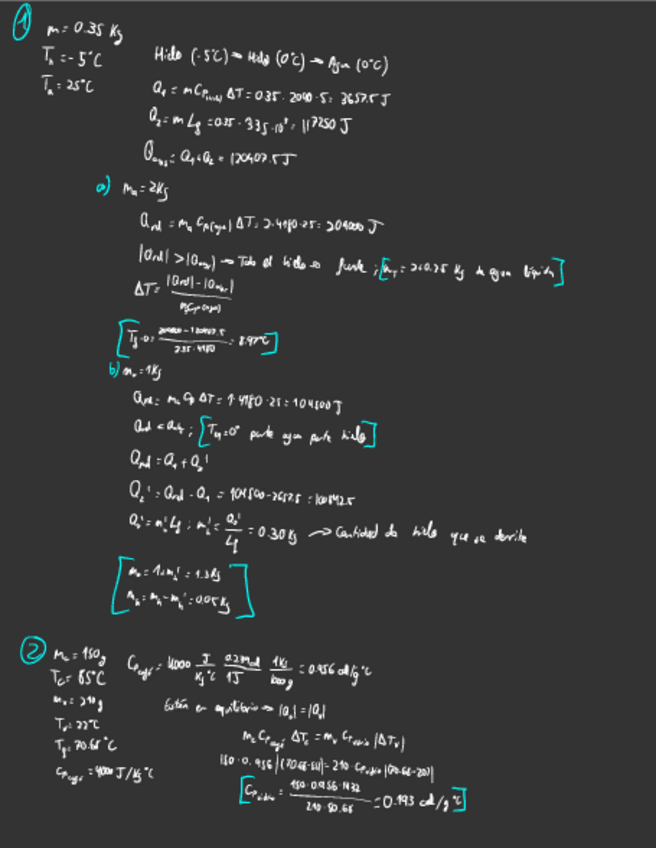 ①
m = 0.35 Kg
T_h = -5°C
T_a = 25°C
Hielo (-5°C) → Hielo (0°C) → Agua (0°C)
Q_1 = m C_p ΔT = 0.35 · 2090 · 5 = 3657.5 J
Q_2 = m L_f = 0.35 · 335 · 10³ = 117250 J
= Q_1 + Q_2 = 120907.5 J
a) m_a = 2Kg
Q_red = m_a C_p(agua) ΔT = 2 · 4180 · 25 = 209000 J
|Q_red| > |Q_abs| → Todo el hielo se funde ; [m_T = 2+0.35 Kg de agua líquida]
ΔT = |Q_red| - |Q_abs|
[T_f - 0 = = 8.97°C]
2.35 · 4180
b) m_a = 1Kg
= m_a C_p ΔT = 1 · 4180 · 25 = 104500 J
; [T_f = 0° parte agua parte hielo]
Q_red = Q_1 + Q_2'
Q_2' = Q_red - Q_1 = 104500 - 3657.5 = 100842.5
Q_2' = m_h' L_f ; m_h' = Q_2' / L_f = 0.30 Kg → Cantidad de hielo que se derrite
[m_a = 1 + m_h' = 1.3 Kg
m_h = m_h - m_h' = 0.05 Kg]
②
m_c = 150 g
T_c = 85°C
m_v = 210 g
T_v = 22°C
T_f = 70.65°C
C_p café = 4000 J/Kg°C
C_p café = 4000 J / Kg°C · 0.239 cal / 1J · 1Kg / 1000 g = 0.956 cal/g°C
Están en equilibrio → |Q_c| = |Q_v|
m_c C_p café ΔT_c = m_v C_p vidrio |ΔT_v|
150 · 0.956 = 210 · C_p vidrio
[C_p vidrio = 150 · 0.956 / 210 · 50.65 = 0.193 cal/g°C]